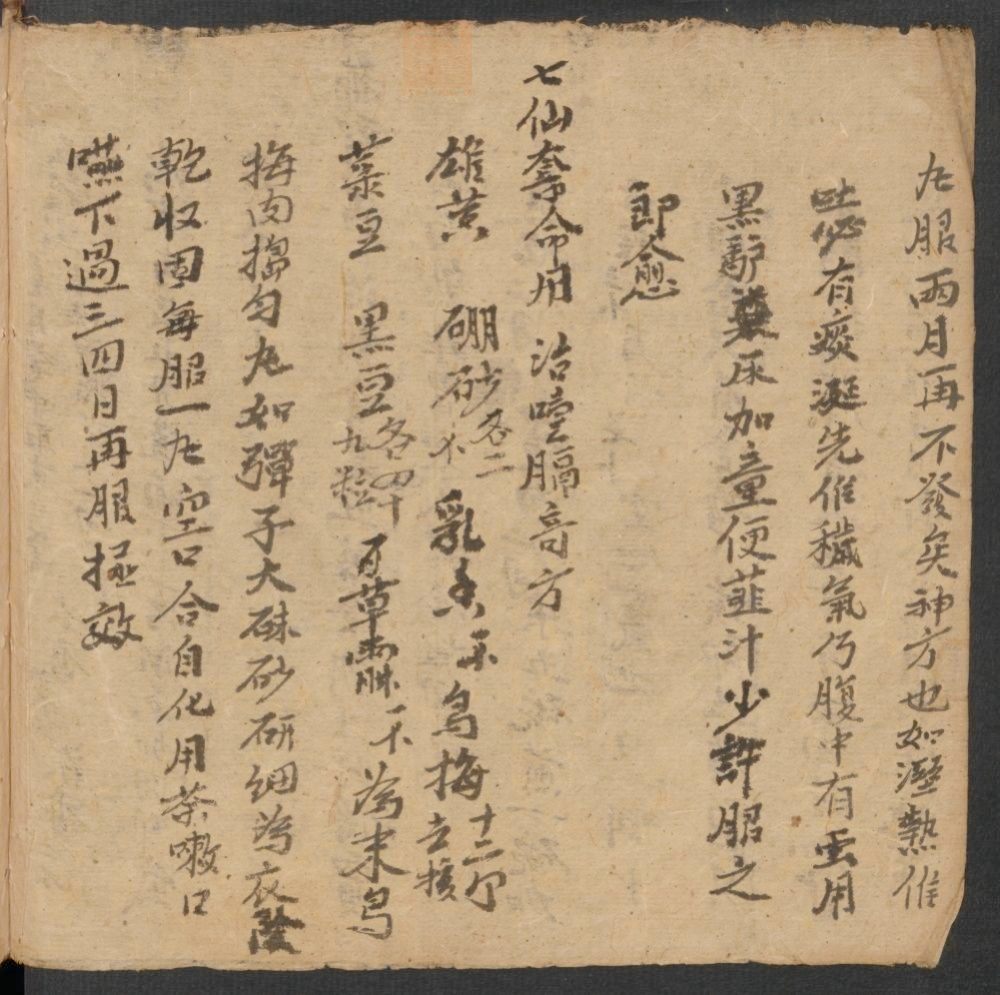 九服兩月再不發矣神方也如溼熱作
吐必有痰涎先作穢氣乃腹中有虫用
黑馿糞尿加童便韮汁少許服之
即愈
七仙奪命用治噎膈奇方
雄黃 硼砂各二 乳香 烏梅十二个去核
菉豆 黑豆各四十九粒 百草霜 為末烏
梅肉搗勻丸如彈子大硃砂研細為衣陰
乾收固每服一丸空口含自化用茶嗽口
嚥下過三四日再服極效